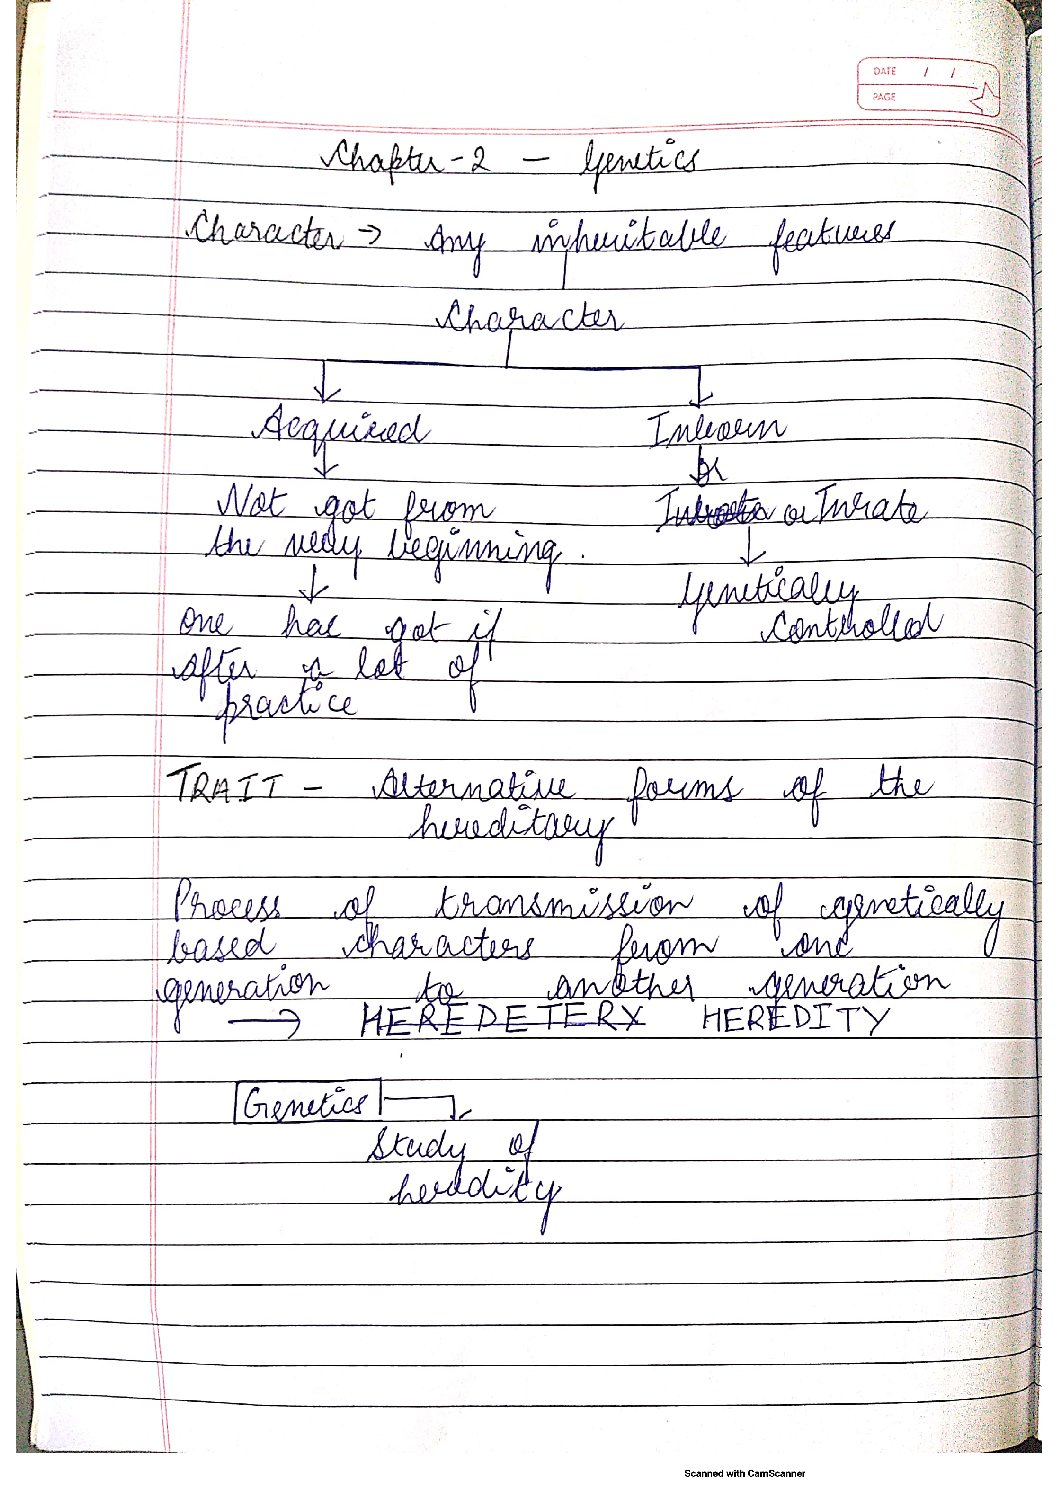 DATE / /
PAGE
Chapter - 2 - Genetics
Character → Any inheritable features
Character
Acquired Inborn
or
Not got from or Innate
the very beginning.
Genetically
controlled
one has got it
after a lot of
practice
TRAIT - Alternative forms of the
hereditary
Process of transmission of genetically
based characters from one
generation to another generation
→ HEREDETERY HEREDITY
Genetics
Study of
heredity
Scanned with CamScanner